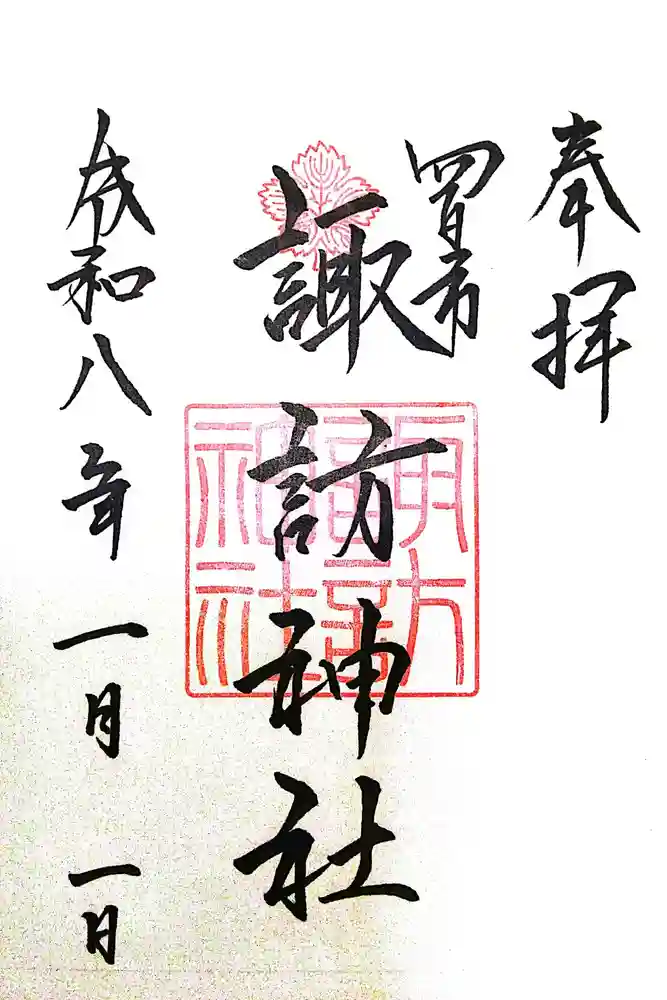 奉拝
四日市
諏訪神社
令和八年一月一日
諏訪
神社